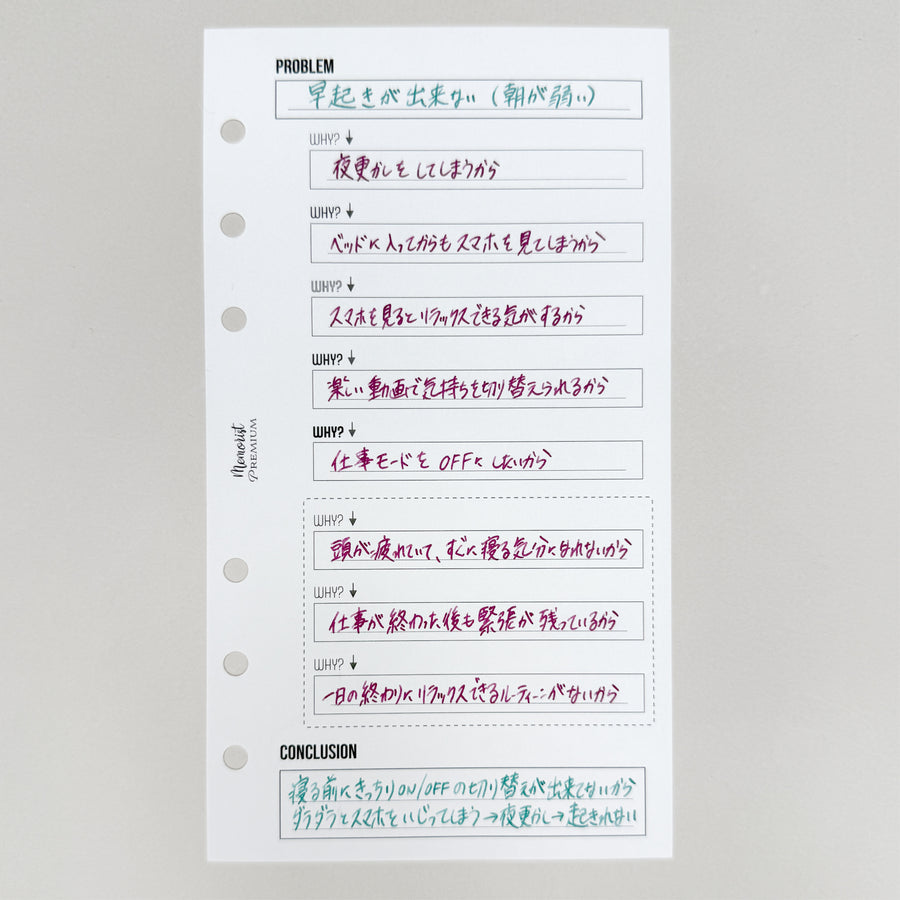 PROBLEM
早起きが出来ない(朝が弱い)
WHY?
夜更かしをしてしまうから
WHY?
ベッドに入ってからもスマホを見てしまうから
WHY?
スマホを見るとリラックスできる気がするから
WHY?
楽しい動画で気持ちを切り替えられるから
WHY?
仕事モードをOFFにしたいから
WHY?
頭が疲れていて、すぐに寝る気分になれないから
WHY?
仕事が終わった後も緊張が残っているから
WHY?
一日の終わりにリラックスできるルーティーンがないから
CONCLUSION
寝る前にきっちりON/OFFの切り替えが出来てないから
ダラダラとスマホをいじってしまう→夜更かし→起きれない
Memorist
PREMIUM